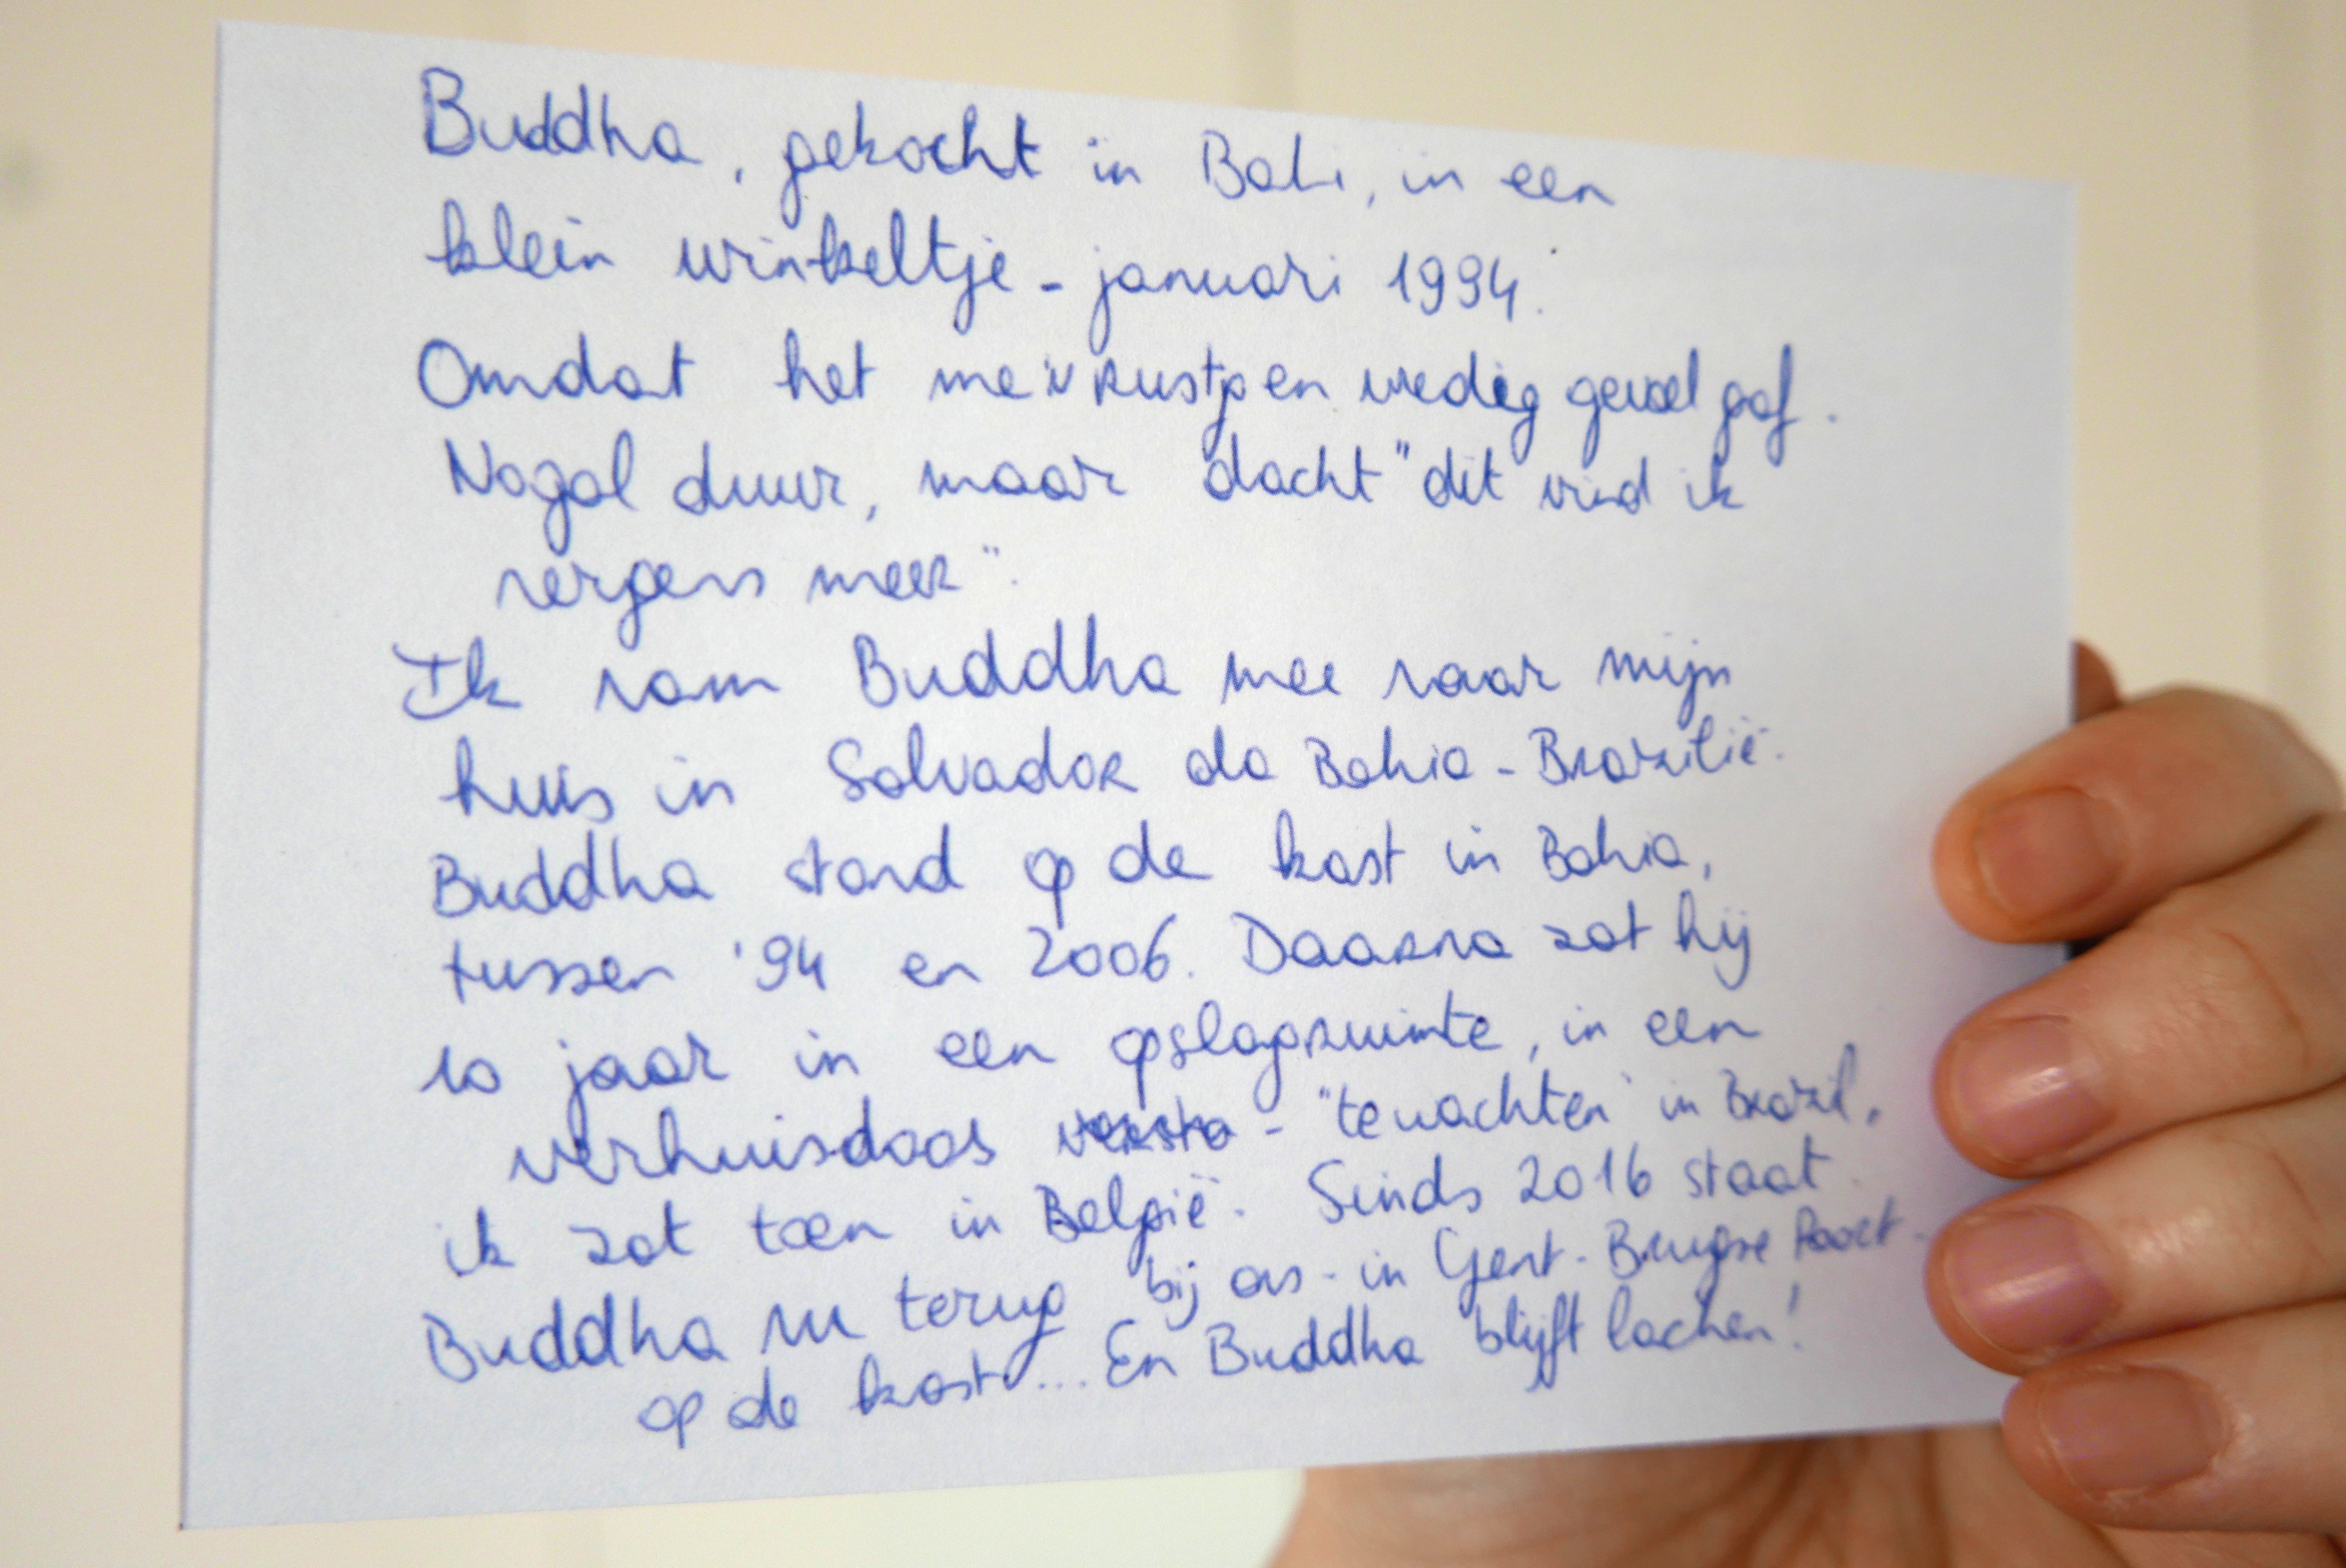 Buddha, gekocht in Bali, in een
klein winkeltje - januari 1994.
Omdat het me 'n rust en vredig gevoel gaf.
Nogal duur, maar dacht "dit vind ik
nergens meer".
Ik nam Buddha mee naar mijn
huis in Salvador da Bahia - Brazilië.
Buddha stond op de kast in Bahia,
tussen '94 en 2006. Daarna zat hij
10 jaar in een opslagruimte, in een
verhuisdoos - "te wachten" in Brazil,
ik zat toen in België. Sinds 2016 staat
Buddha nu terug bij ons - in Gent - Brugse Poort -
op de kast... En Buddha blijft lachen!